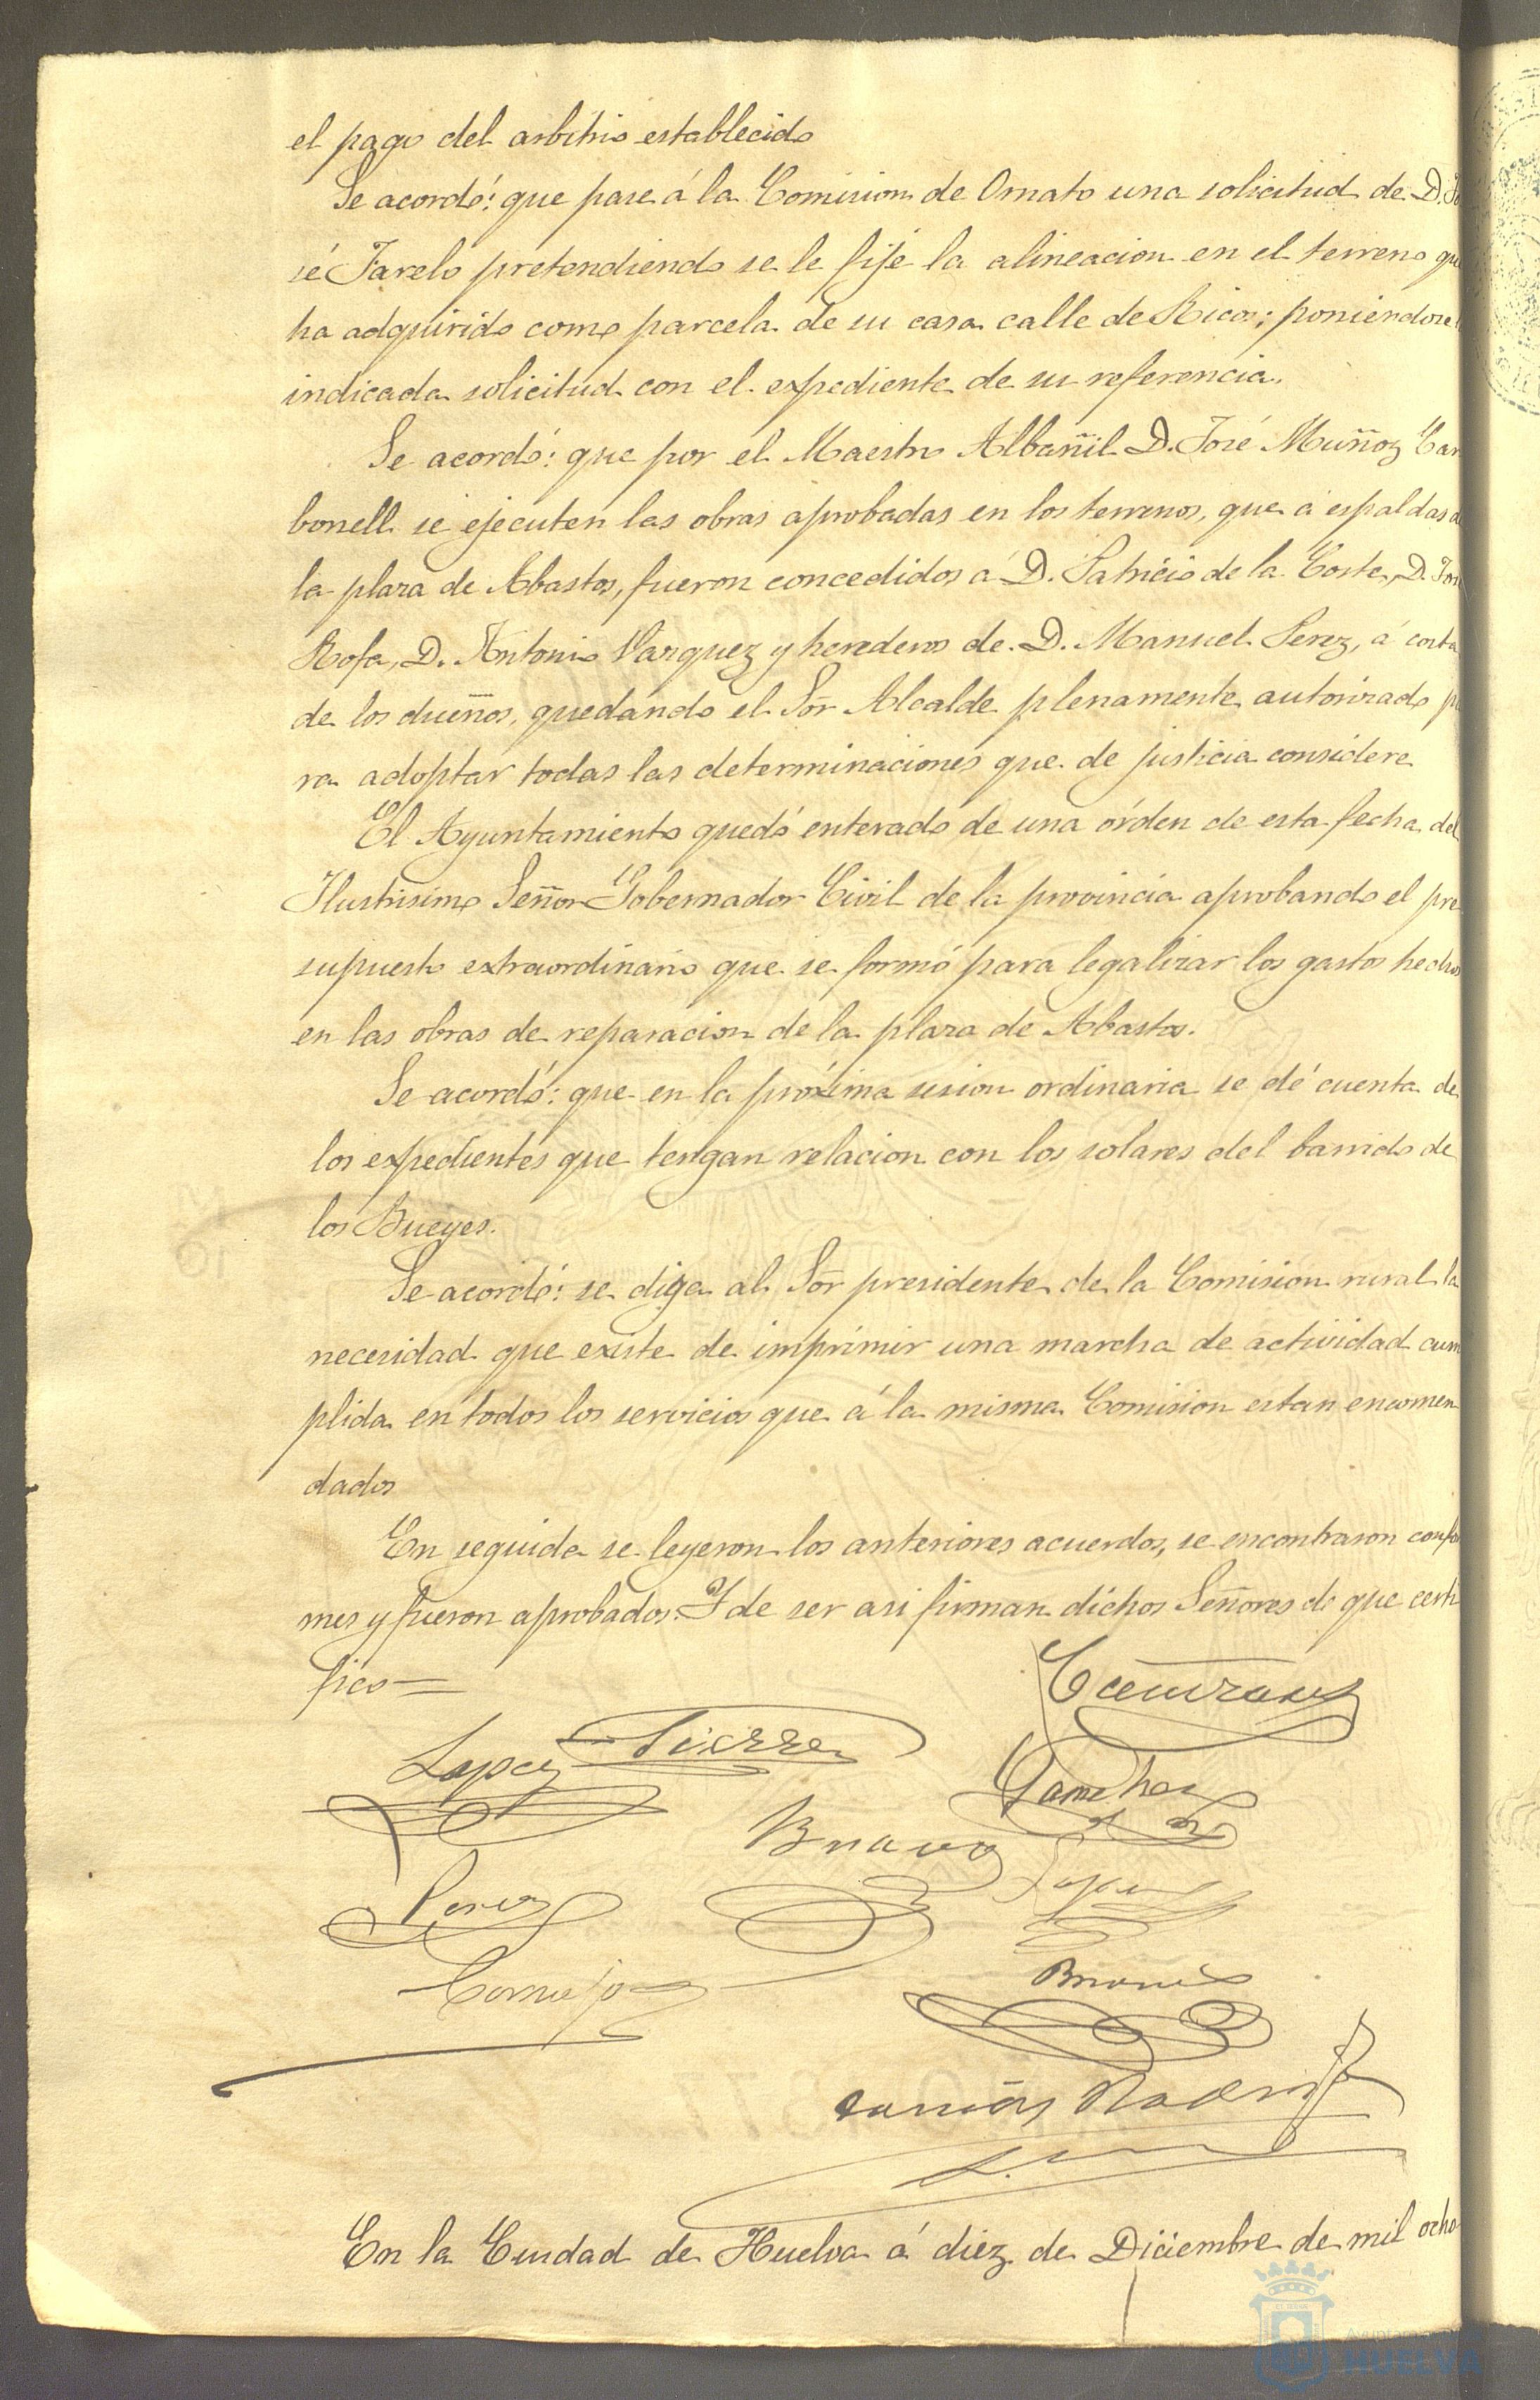 el pago del arbitrio establecido
Se acordó: que pase á la Comision de Ornato una solicitud de D. Jo
sé Farelo pretendiendo se le fije la alineacion en el terreno que
ha adquirido como parcela de su casa calle de Ricos; poniendose
indicada solicitud con el expediente de su referencia.
Se acordó: que por el Maestro Albañil D. José Muñoz Car
bonell se ejecuten las obras aprobadas en los terrenos, que á espaldas de
la plaza de Abastos, fueron concedidos á D. Patricio de la Corte, D. José
Rofa, D. Antonio Vazquez y herederos de D. Manuel Perez, á costa
de los dueños, quedando el Sõr Alcalde plenamente autorizado pa
ra adoptar todas las determinaciones que de justicia considere
El Ayuntamiento quedó enterado de una órden de esta fecha del
Ilustrisimo Señor Gobernador Civil de la provincia aprobando el pre
supuesto extraordinario que se formó para legalizar los gastos hechos
en las obras de reparacion de la plaza de Abastos.
Se acordó: que en la próxima sesion ordinaria se dé cuenta de
los expedientes que tengan relacion con los solares del barrido de
los Bueyes.
Se acordó: se diga al Sõr presidente de la Comision rural la
necesidad que existe de imprimir una marcha de actividad cum
plida en todos los servicios que á la misma Comision estan encomen
dados
En seguida se leyeron los anteriores acuerdos, se encontraron confor
mes y fueron aprobados. Y de ser asi firman dichos Señores de que certi
fico=
Lopez
Sanchez
Bravo
Lopez
Perez
Cornejo
En la Ciudad de Huelva á diez de Diciembre de mil ocho
Ayuntamiento
HUELVA